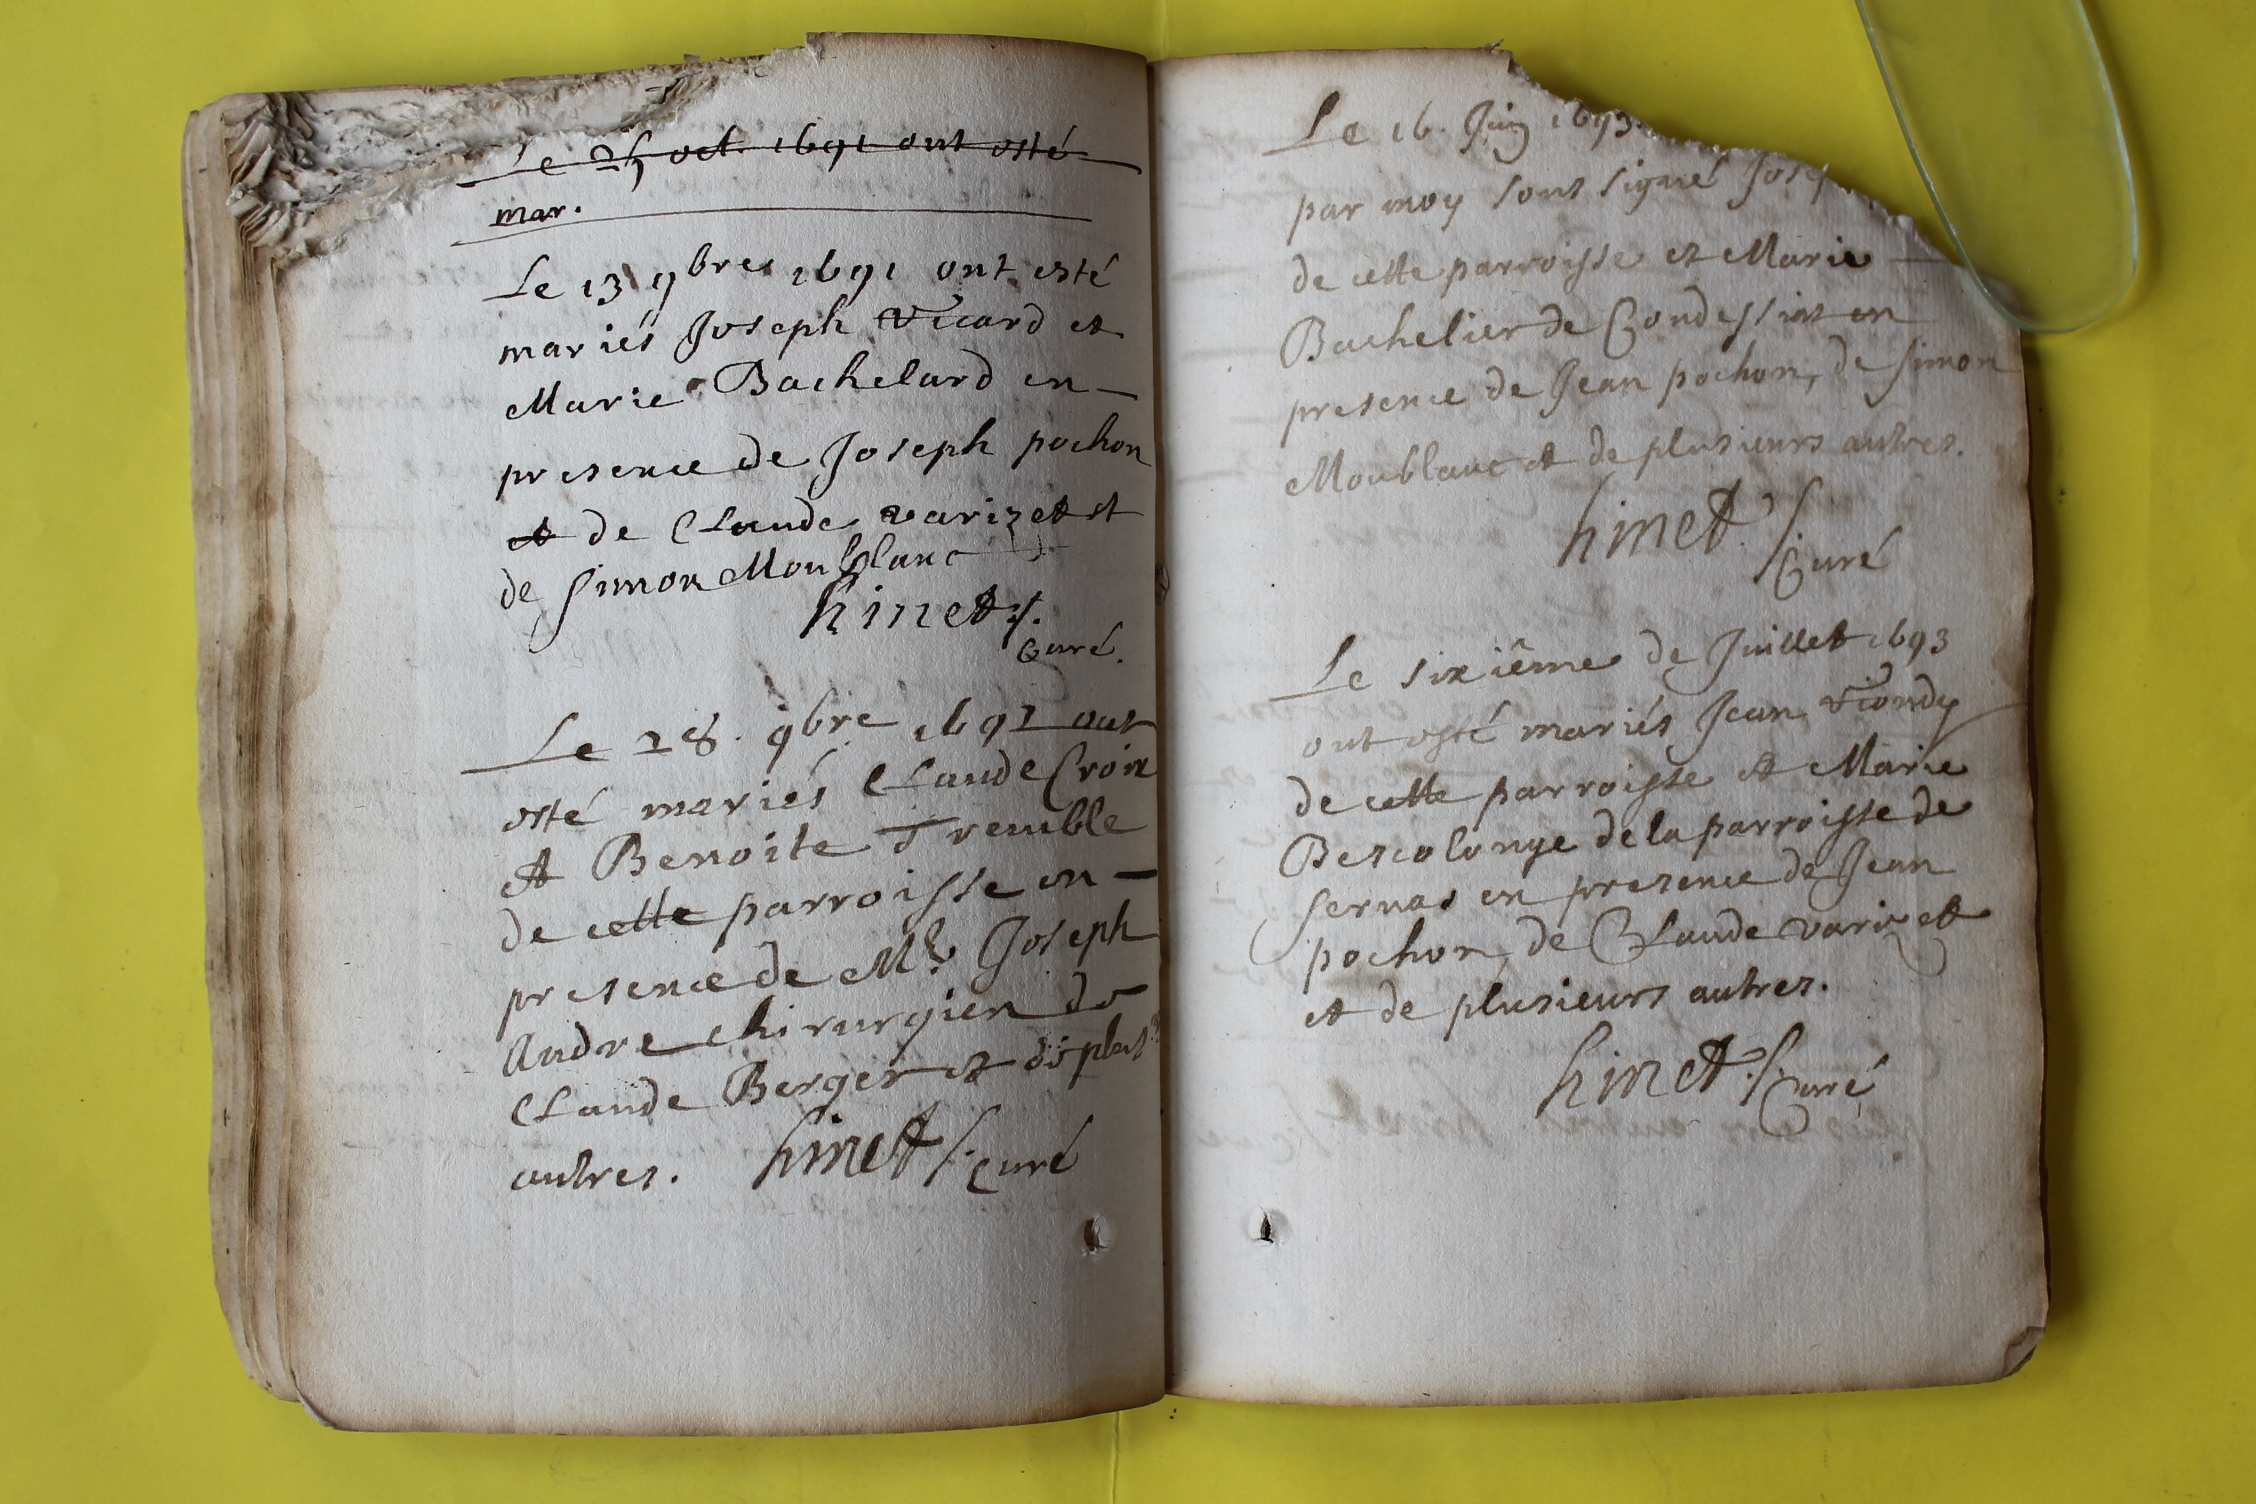 Le 25 oct. 1691 ont esté
mar.
Le 13 9bres 1691 ont esté
mariés Joseph Vicard et
Marie Bachelard en
presence de Joseph pochon
et de Claude varizet et
de Simon Monblanc
hinet
Curé.
Le 28. 9bre 1692 ont
esté mariés Claude Croix
et Benoite Tremble
de cette parroisse en
presence de Mr Joseph
Andre chirurgien de
Claude Berger et de plus
autres. hinet Curé
Le 16. Juin 1693.
par moy sous signé
de cette parroisse et Marie
Bachelier de Condessiat en
presence de Jean pochon, de Simon
Monblanc et de plusieurs autres.
hinet
Curé
Le sixiême de Juillet 1693
ont esté mariés Jean Viondy
de cette parroisse et Marie
Bescolonge de la parroisse de
Servas en presence de Jean
pochon, de Claude varizet
et de plusieurs autres.
hinet. Curé